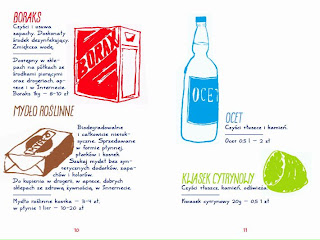 BORAKS
Czyści i usuwa
zapachy. Doskonały
środek dezynfekujący.
Zmiękcza wodę.
Dostępny w skle-
pach na półkach ze
środkami piorącymi
oraz drogeriach, ap-
tece i w Internecie.
Boraks 1kg – 8-10 zł
BORAX
MYDŁO ROŚLINNE
Biodegradowalne
i całkowicie nietok-
syczne. Sprzedawane
w formie płynnej,
płatków i kostek.
Szukaj mydeł bez syn-
tetycznych dodatków, zapa-
chów i kolorów.
Do kupienia w drogerii, w aptece, dobrych
sklepach ze zdrową żywnością, w Internecie.
Mydło roślinne kostka – 3-4 zł,
w płynie 1 litr – 10-20 zł
10
OCET
OCET
Czyści tłuszcz i kamień.
Ocet 0,5 l – 2 zł
KWASEK CYTRYNOWY
Czyści tłuszcz, kamień, odświeża.
Kwasek cytrynowy 20g – 0,5 1 zł
11